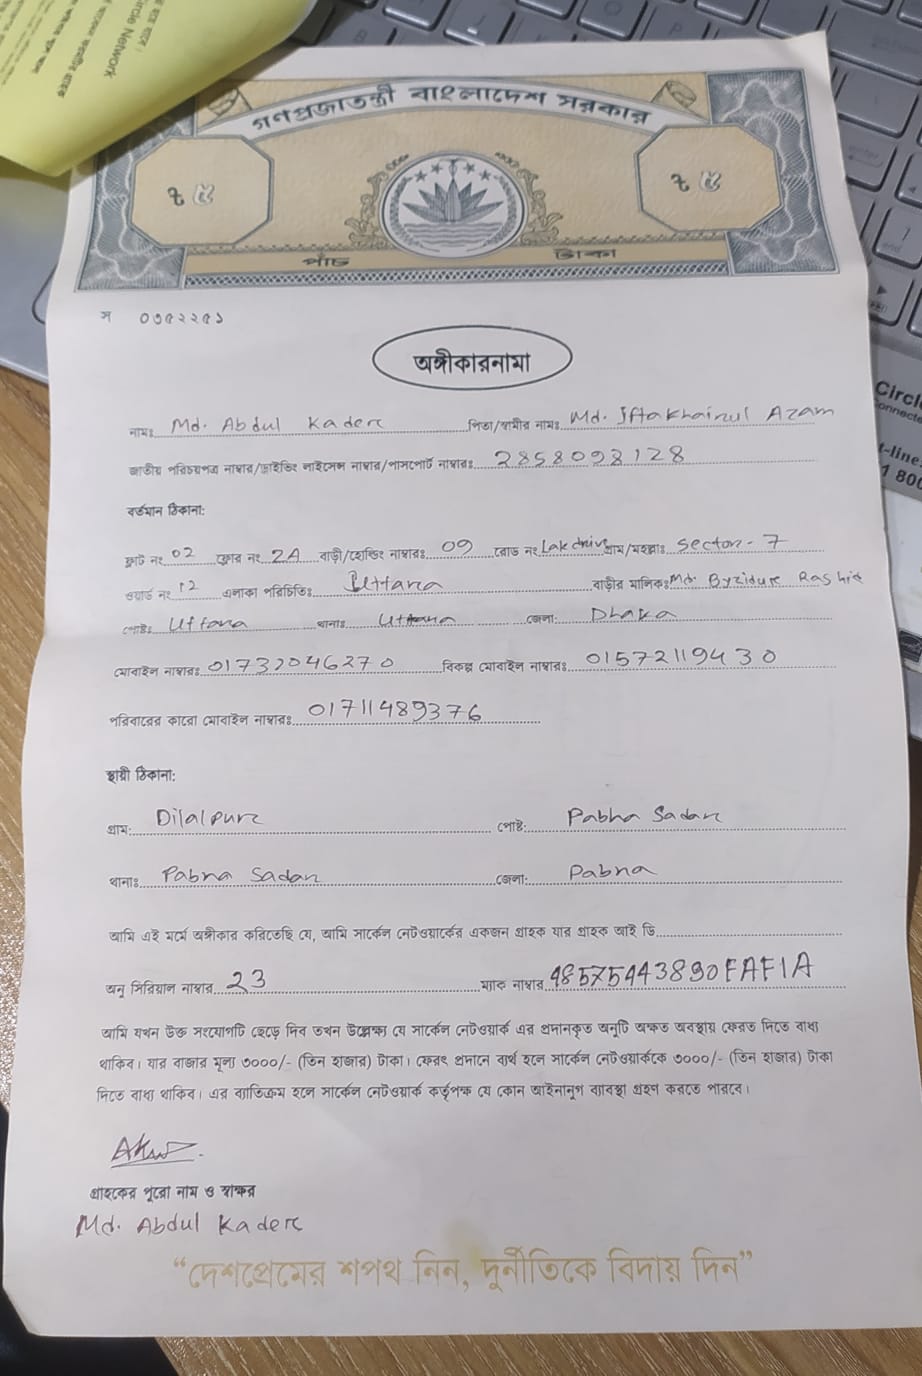 Circle Network
গণপ্রজাতন্ত্রী বাংলাদেশ সরকার
৳ ৫ ৳ ৫
পাঁচ টাকা
স ০৩৫২২৫১
অঙ্গীকারনামা
নামঃ Md. Abdul Kader পিতা/স্বামীর নামঃ Md. Iftakhairul Azam
জাতীয় পরিচয়পত্র নাম্বার/ড্রাইভিং লাইসেন্স নাম্বার/পাসপোর্ট নাম্বারঃ 2858098128
বর্তমান ঠিকানা:
ফ্লাট নং 02 ফ্লোর নং 2A বাড়ী/হোল্ডিং নাম্বারঃ 09 রোড নং Lakdrive গ্রাম/মহল্লাঃ Sector-7
ওয়ার্ড নং 12 এলাকা পরিচিতিঃ Uttara বাড়ীর মালিকঃ Md. Byzidur Rashid
পোষ্টঃ Uttara থানাঃ Uttara জেলা: Dhaka
মোবাইল নাম্বারঃ 01737046270 বিকল্প মোবাইল নাম্বারঃ 01572119430
পরিবারের কারো মোবাইল নাম্বারঃ 01711489376
স্থায়ী ঠিকানা:
গ্রাম: Dilalpur পোষ্ট: Pabna Sadar
থানাঃ Pabna Sadar জেলা: Pabna
আমি এই মর্মে অঙ্গীকার করিতেছি যে, আমি সার্কেল নেটওয়ার্কের একজন গ্রাহক যার গ্রাহক আই ডি
অনু সিরিয়াল নাম্বার 23 ম্যাক নাম্বার 48575443890FAF1A
আমি যখন উক্ত সংযোগটি ছেড়ে দিব তখন উল্লেক্ষ্য যে সার্কেল নেটওয়ার্ক এর প্রদানকৃত অনুটি অক্ষত অবস্থায় ফেরত দিতে বাধ্য
থাকিব। যার বাজার মূল্য ৩০০০/- (তিন হাজার) টাকা। ফেরৎ প্রদানে ব্যর্থ হলে সার্কেল নেটওয়ার্ককে ৩০০০/- (তিন হাজার) টাকা
দিতে বাধ্য থাকিব। এর ব্যতিক্রম হলে সার্কেল নেটওয়ার্ক কর্তৃপক্ষ যে কোন আইনানুগ ব্যাবস্থা গ্রহণ করতে পারবে।
গ্রাহকের পুরো নাম ও স্বাক্ষর
Md. Abdul Kader
“দেশপ্রেমের শপথ নিন, দুর্নীতিকে বিদায় দিন”